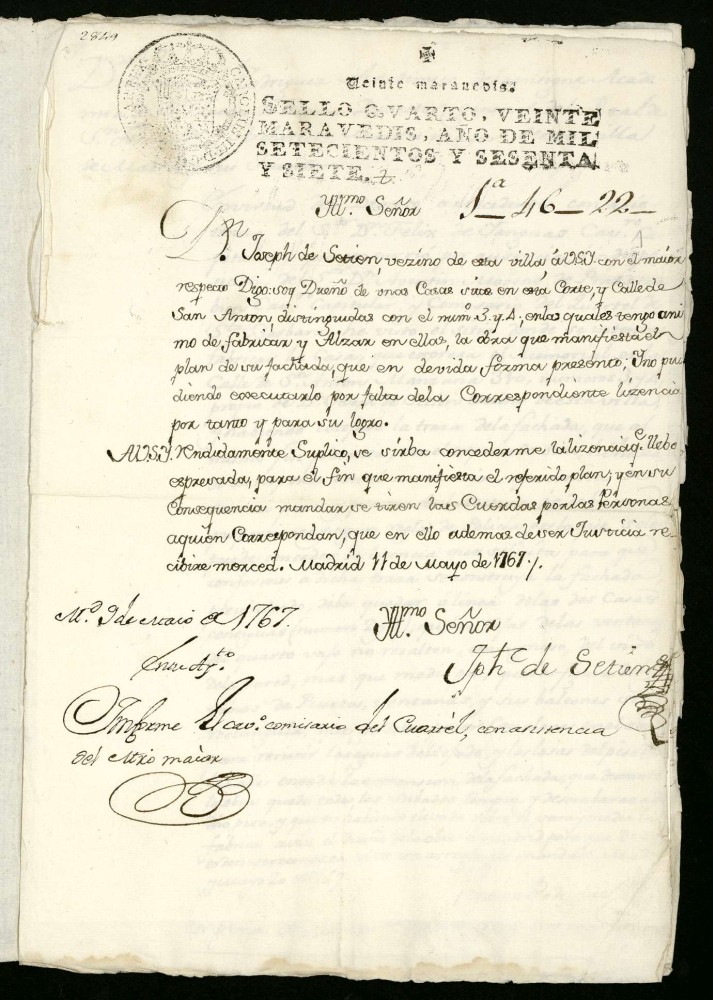 2849
Veinte maravedis.
SELLO QVARTO, VEINTE
MARAVEDIS, AÑO DE MIL
SETECIENTOS Y SESENTA
Y SIETE.
Yll.mo Señor 1a 46 - 22 -
Dn. Joseph de Setien, vezino de esta villa á VSY. con el maior
respecto Digo: soy Dueño de unas Casas sitas en esta Corte, y Calle de
San Anton, distinguidas con el num.o 3. y 4; en las quales tengo ani
mo de fabricar y Alzar en ellas, la obra que manifiesta el
plan de su fachada, que en devida forma presento; Y no pu
diendo executarlo por falta dela Correspondiente lizencia
por tanto y para su logro.
A VSY. Rendidamente Suplico, se sirba concederme la lizencia q.e llebo
espresada, para el fin que manifiesta el referido plan; y en su
Consequencia mandar se tiren las Cuerdas por las Personas
aquien Correspondan, que en ello ademas de ser Justicia re
cibire merced. Madrid 11 de Mayo de 1767.
M.d 9 de Maio de 1767.
Yll.mo Señor
En su Ay.to
Jph. de Setien
Informe el cav.o comisario del Cuartel, con asistencia
del Mro maior